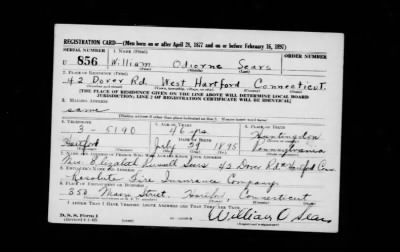 REGISTRATION CARD—(Men born on or after April 28, 1877 and on or before February 16, 1897)
SERIAL NUMBER 1. NAME (Print) ORDER NUMBER
U 856 William Odiorne Sears
(First) (Middle) (Last)
2. PLACE OF RESIDENCE (Print)
42 Dover Rd. West Hartford Connecticut.
[THE PLACE OF RESIDENCE GIVEN ON THE LINE ABOVE WILL DETERMINE LOCAL BOARD
JURISDICTION; LINE 2 OF REGISTRATION CERTIFICATE WILL BE IDENTICAL]
3. MAILING ADDRESS
same
4. TELEPHONE 5. AGE IN YEARS 6. PLACE OF BIRTH
3-5190 46 yrs Huntingdon
DATE OF BIRTH
Hartford July 21 1895 Pennsylvania
7. NAME AND ADDRESS OF PERSON WHO WILL ALWAYS KNOW YOUR ADDRESS
Mrs. Elizabeth Russell Sears 42 Dover Rd. W Hartford Conn
8. EMPLOYER'S NAME AND ADDRESS
Fire Insurance Company
9. PLACE OF EMPLOYMENT OR BUSINESS
Main Street, Hartford, Connecticut
I AFFIRM THAT I HAVE VERIFIED ABOVE ANSWERS AND THAT THEY ARE TRUE.
D. S. S. Form 1
William O. Sears